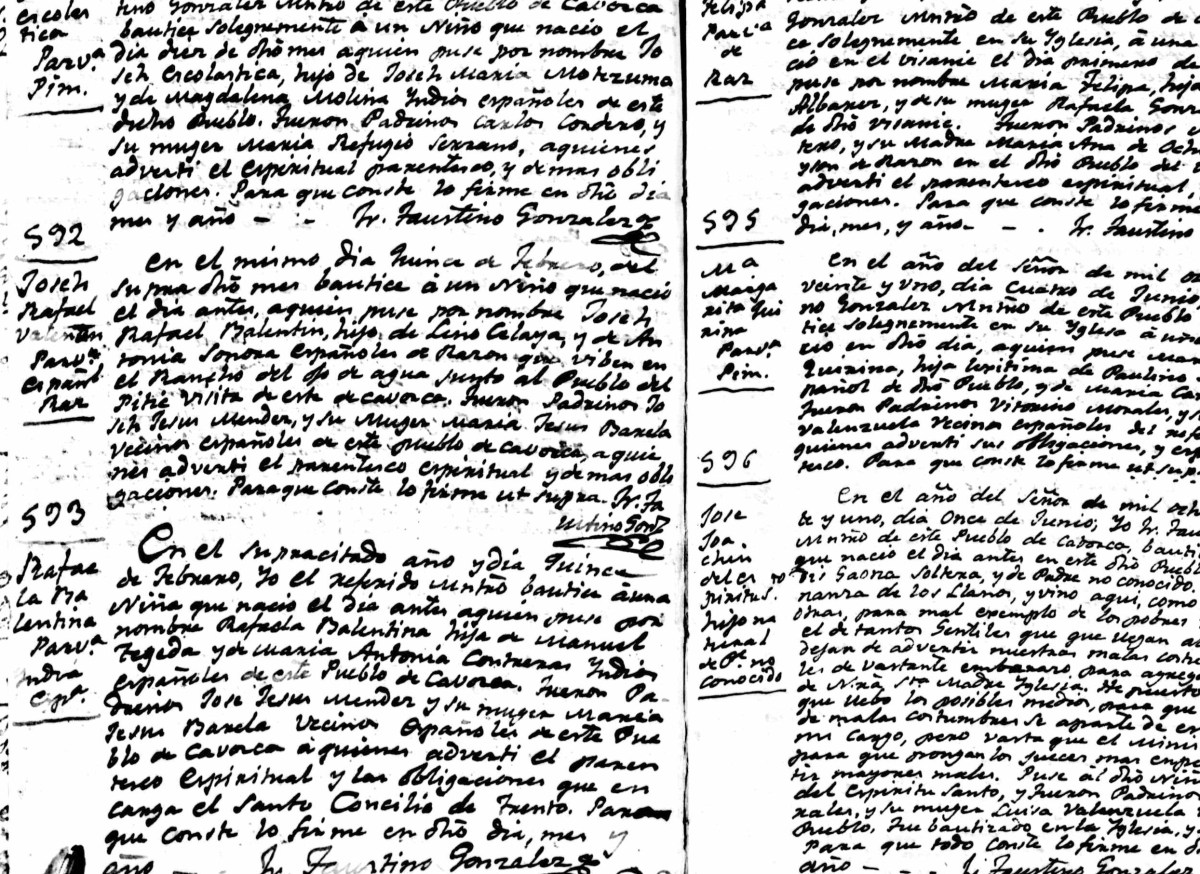 Escolas
tica
Parv.ª
Pim.
tino Gonzalez Mntrõ de este Pueblo de Cavorca
bautice solegnemente à un Niño que nació el
dia diez de dhõ mes aquien puse por nombre Jo
seh Escolastica, hijo de Joseh Maria Motezuma
y de Magdalena Molina Yndios españoles de este
dicho Pueblo. Fueron Padrinos Carlos Cordero, y
su muger Maria Refugio Serrano, aquienes
adverti el espiritual parentesco, y demas obli
gaciones. Para que conste lo firme en dhõ dia
mes y año - - Fr. Faustino Gonzalez
592
Joseh
Rafael
Valentin
Parv.º
Español
Raz
En el mismo dia Quince de Febrero, del
supra dhõ mes bautice à un Niño que nació
el dia antes, aquien puse por nombre Joseh
Rafael Balentin, hijo de Lino Celaya, y de An
tonia Sonora españoles de Razon que viben en
el Rancho del ojo de agua junto al Pueblo del
Pitic visita de este de Cavorca. Fueron Padrinos Jo
seh Jesus Mendez, y su Muger Maria Jesus Barela
vecinos españoles de este pueblo de Cavorca, a quie
nes adverti el parentesco espiritual y demas obli
gaciones. Para que conste lo firme ut supra. Fr. Fa
ustino Gonz
593
Rafae
la Ba
lentina
Parv.ª
Yndia
Esp.ª
En el supracitado año y dia Quince
de Febrero, Yo el referido Mntrõ bautice à una
Niña que nació el dia antes aquien puse por
nombre Rafaela Balentina hija de Manuel
Tegeda y de Maria Antonia Contreras Yndios
españoles de este Pueblo de Cavorca. Fueron Pa
drinos Jose Jesus Mendez y su muger Maria
Jesus Barela Vecinos Españoles de este Pue
blo de Cavorca a quienes adverti el paren
tesco espiritual y las obligaciones que en
carga el Santo Concilio de Trento. Para
que conste lo firme en dhõ dia, mes y
año - Fr. Faustino Gonzalez
Felipa
Parv.ª
de
Raz
Gonzalez Mntrõ de este Pueblo de
ce solegnemente en su Yglesia, à una
ció en el visanic el dia primero de
puse por nombre Maria Felipa, hija
Albanez, y de su muger Rafaela Gonz
de dhõ visanic. Fueron Padrinos
tero, y su Madre Maria Ana de Ocho
y son de Razon en el dhõ Pueblo del
adverti el parentesco espiritual
gaciones. Para que conste lo firme
dia, mes, y año. - - . Fr. Faustino
595
Ma
Marga
rita Qui
rina
Parv.ª
Pim.
En el año del Señor de mil oc
veinte y uno, dia Cuatro de Junio
no Gonzalez Mntrõ de este Pueblo
tice solegnemente en su Yglesa à una
ció en dhõ dia, aquien puse Mar
Quirina, hija legitima de Paulino
pañol de dhõ Pueblo, y de Maria Ca
Fueron Padrinos Vitorino Morales, y s
Valenzuela Vecinos españoles del ref
quienes adverti sus obligaciones, y esp
tesco. Para que conste lo firme ut sup
596
Jose
Joa
chin
del Es
piritu S.
hijo na
tural
de P.e no
conocido
En el año del Señor de mil och
te y uno, dia Once de Junio; Yo Fr. Fau
Mntrõ de este Pueblo de Caborca, bauti
que nació el dia antes en este Pueblo
Gaona Soltera, y de Padre no conocido.
de los Llanos, y vino aqui, como
otras, para mal exemplo de los pobres
el de tantos Gentiles que que llegan a
dejan de advertir nuestras malas costu
les de vastante embarazo para agrega
de Ntrã Sta Madre Yglesia. He puesto
que debo los posibles medios, para que
de malas costumbres se aparte de es
mi cargo, pero vasta que el Mini
para que pongan los jueces mas
tir mayores males. Puse al dhõ Niñ
del Espiritu Santo, y Fueron Padrino
rales, y su muger Luisa Valenzuela
Pueblo. Fue bautizado en la Yglesia, y
Para que todo conste lo firme en d
año - Fr. Faustino Gonzalez